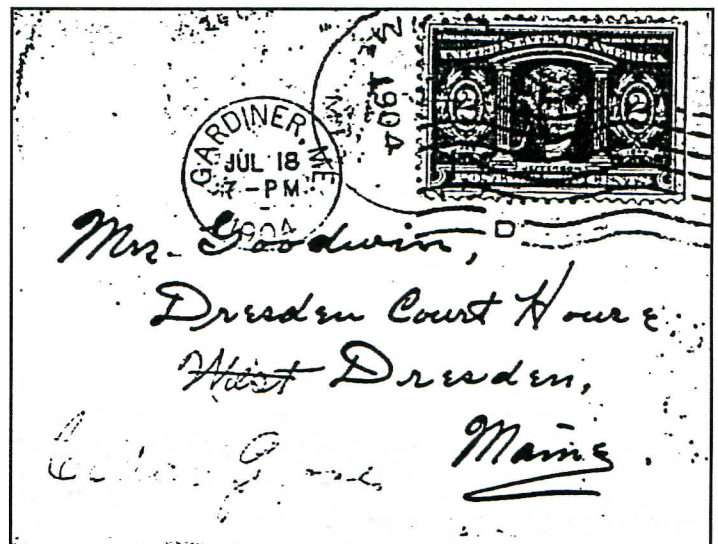 1904
UNITED STATES OF AMERICA
2 2
GARDINER, ME.
JUL 18
7-PM
1904
D
Mrs. Goodwin,
Dresden Court House,
West Dresden,
Maine.